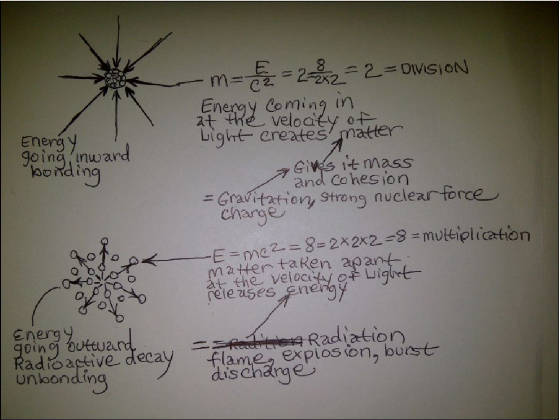 m = E/c² = 2 8/2x2 = 2 = DIVISION
Energy coming in
at the velocity of
Light creates matter
Energy
going inward
bonding
Gives it mass
and cohesion
= Gravitation, strong nuclear force
charge
E = mc² = 8 = 2x2x2 = 8 = multiplication
matter taken apart
at the velocity of Light
releases energy
Energy
going outward
Radioactive decay
unbonding
= = Radiation
flame, explosion, burst
discharge